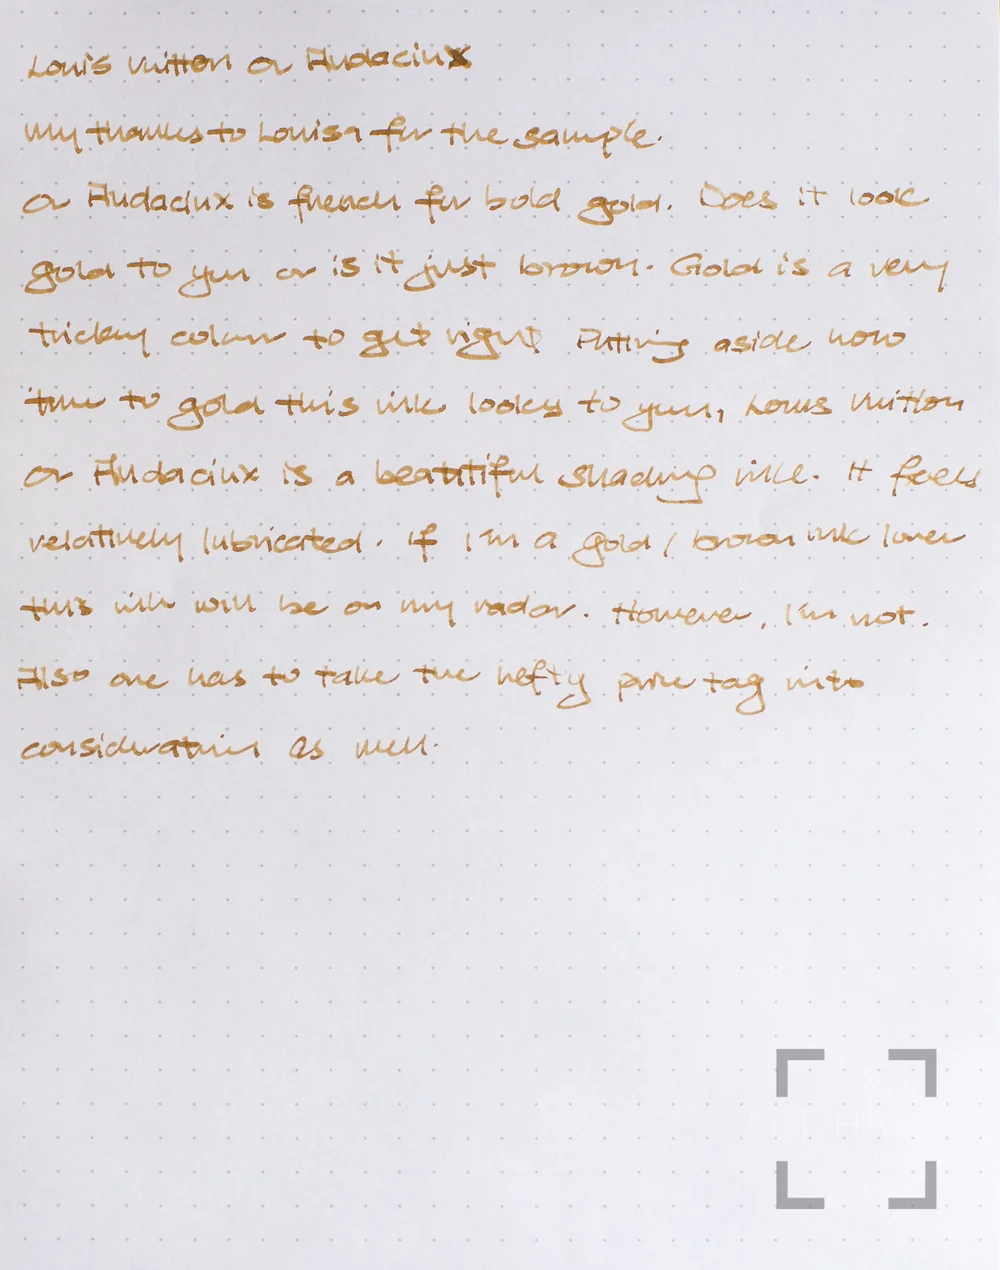 Louis Vuitton Or Audacieux
My thanks to Louisa for the sample.
Or Audacieux is french for bold gold. Does it look
gold to you or is it just brown. Gold is a very
tricky colour to get right. Putting aside how
true to gold this ink looks to you, Louis Vuitton
Or Audacieux is a beautiful shading ink. It feels
relatively lubricated. If I'm a gold / brown ink lover
this ink will be on my radar. However, I'm not.
Also one has to take the hefty price tag into
consideration as well.